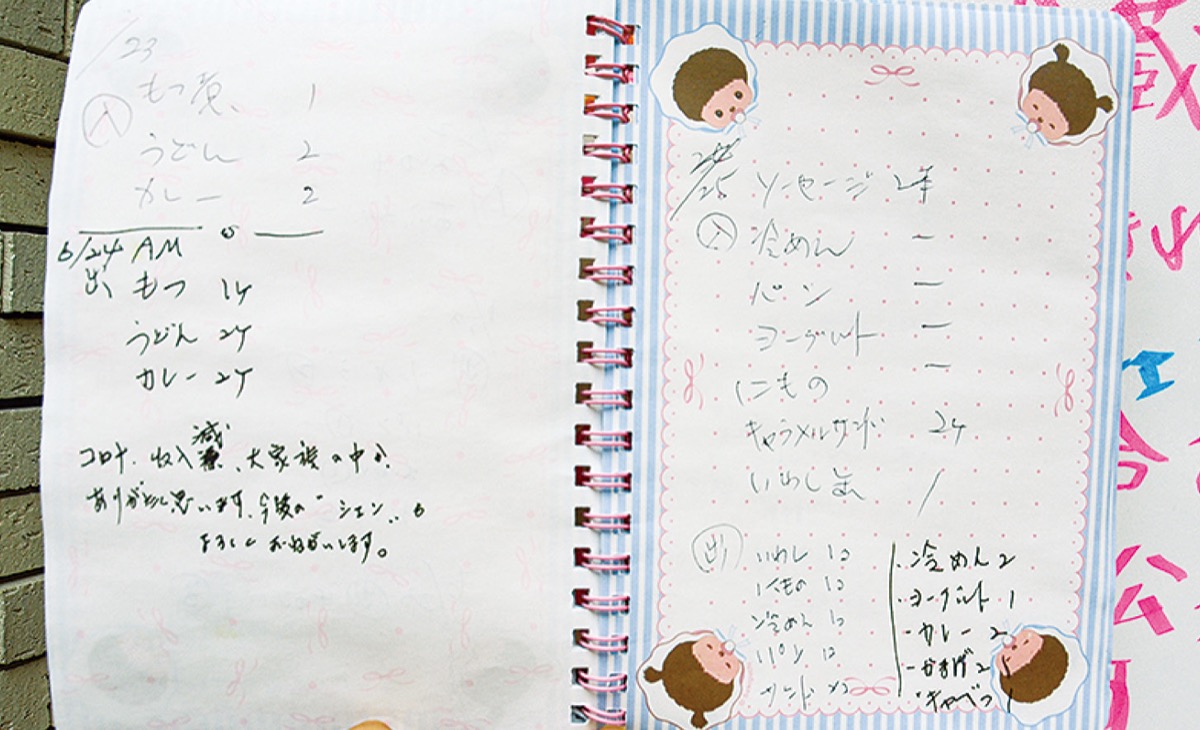 /23
入 もつ煮 1
うどん 2
カレー 2
6/24 AM
出 もつ 1ケ
うどん 2ケ
カレー 2ケ
コロナ、収入減、大家族の中
ありがたく思います。今後の"シエン"も
よろしくおねがいします。
25 ソーセージ 2本
入 冷めん 一
パン 一
ヨーグルト 一
にもの 一
キャラメルサンド 2ケ
いわし缶 1
出 いわし 1コ
にもの 1コ
冷めん 1コ
パン 1コ
サンド
・冷めん 2
・ヨーグルト 1
・カレー 2
2
・キャベツ 1
蔵
公